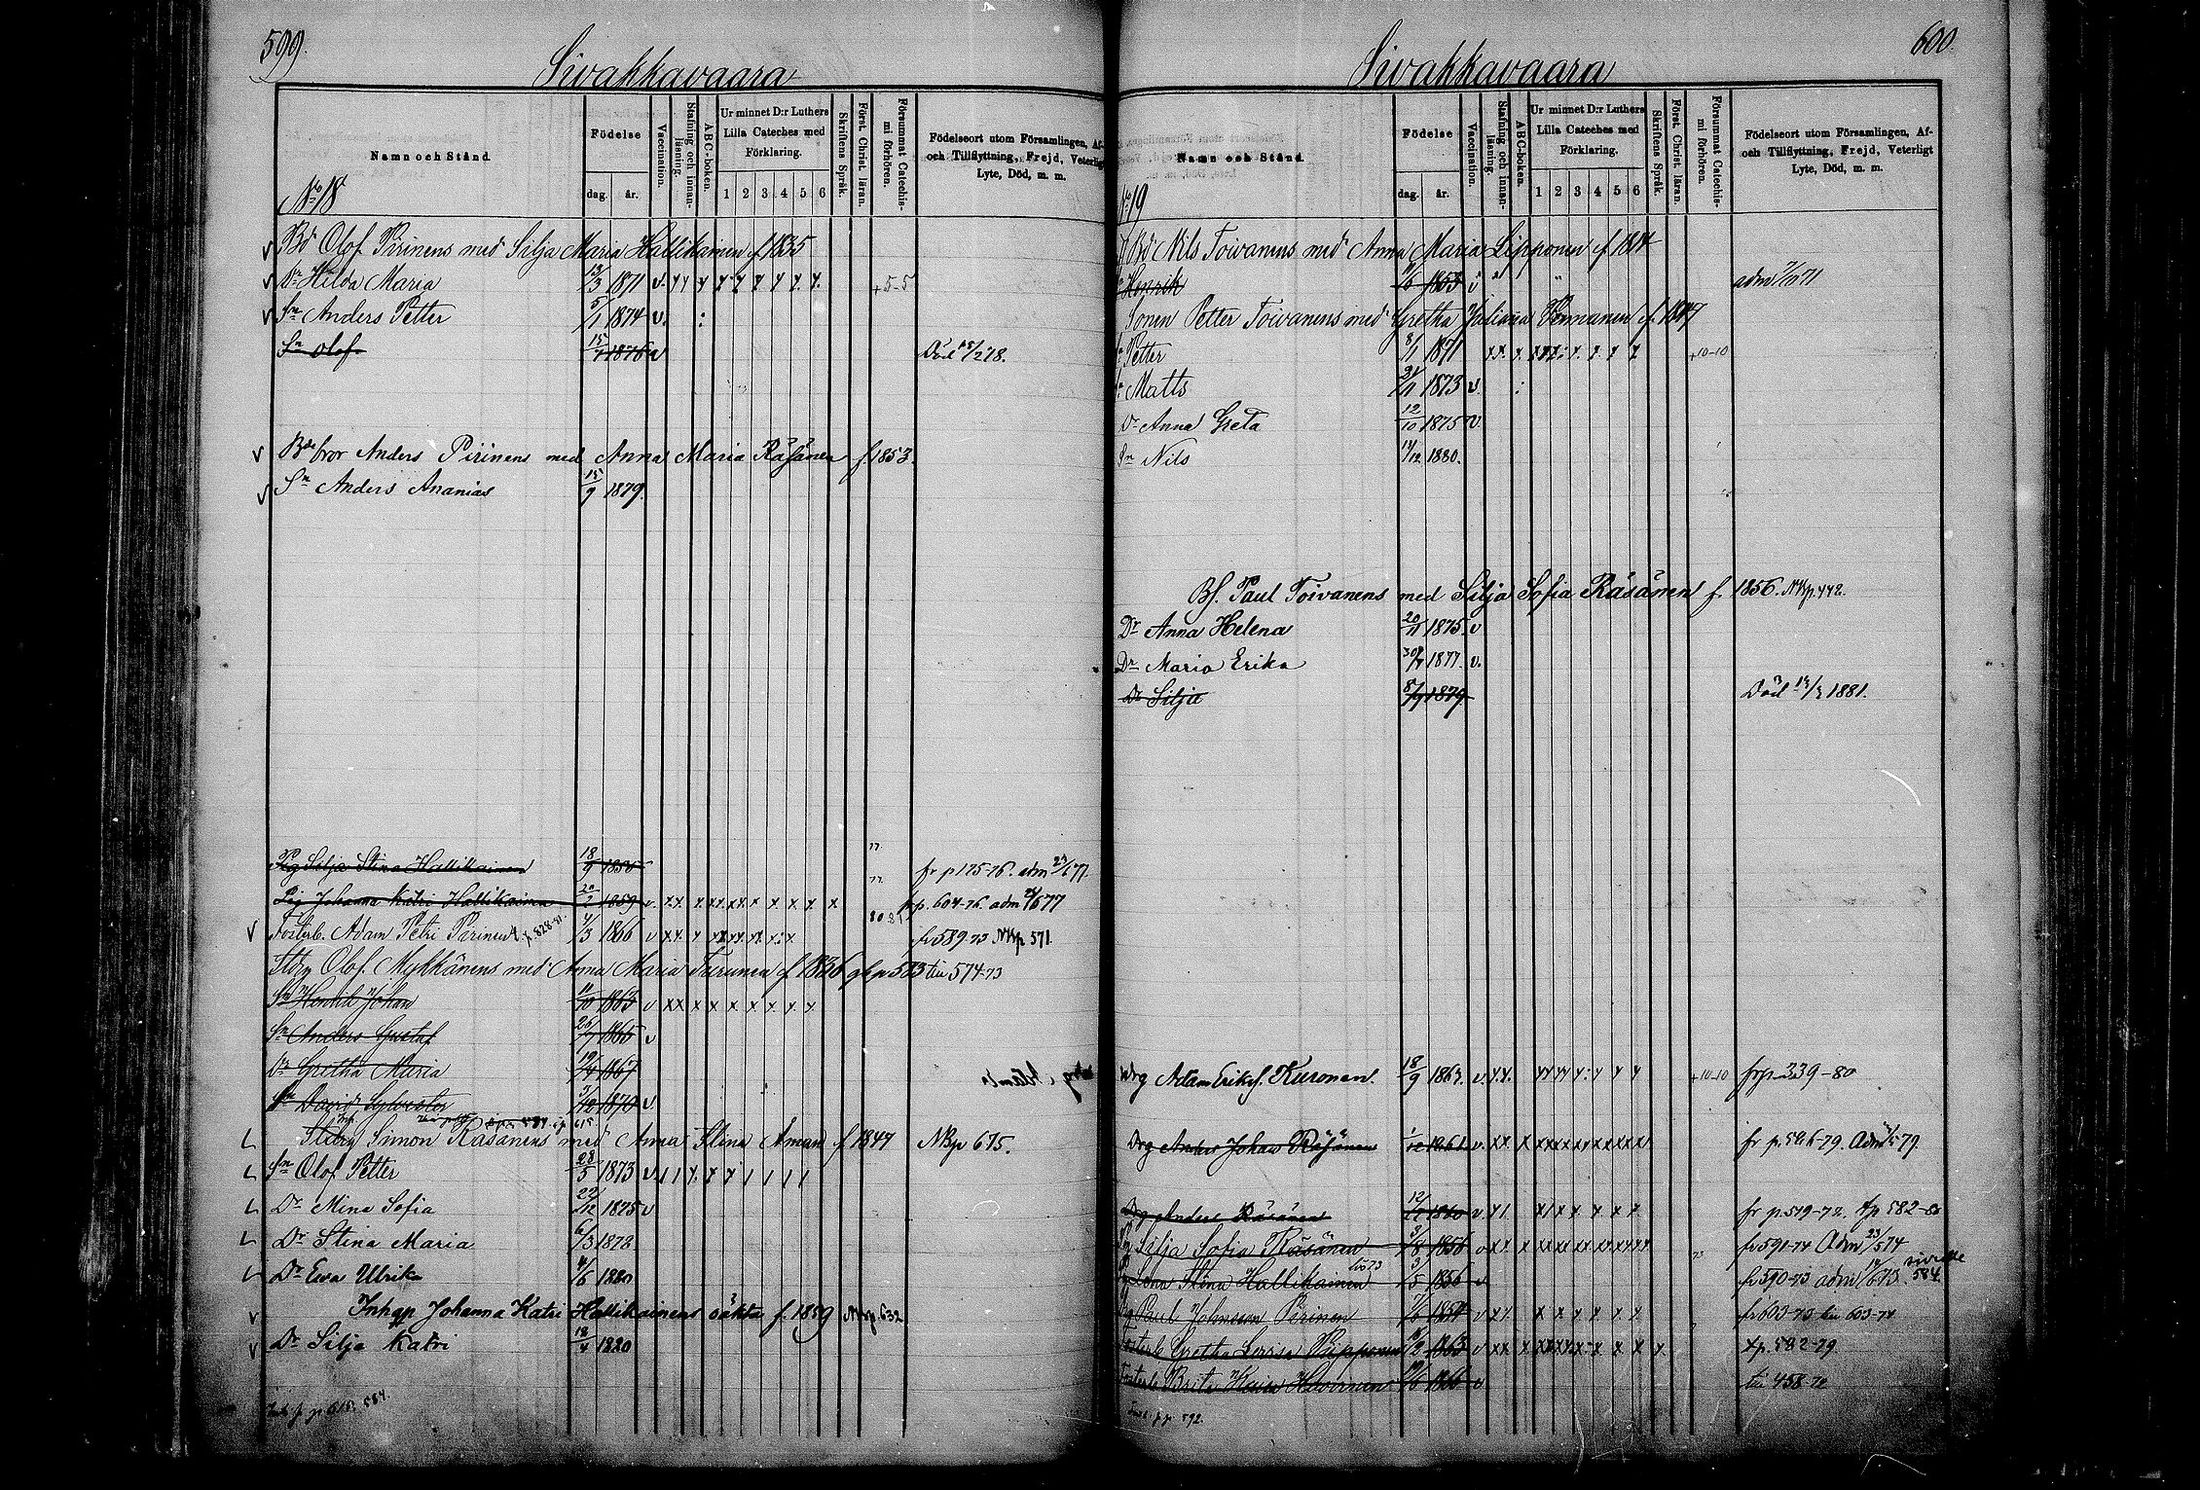 599.
Sivakkavaara
Namn och Stånd.
Födelse
dag.
år.
Vaccination.
Stafning och innan-läsning.
ABC-boken.
Ur minnet D:r Luthers
Lilla Cateches med
Förklaring.
1 2 3 4 5 6
Skriftens Språk.
Först. Christ. läran.
Försummat Catechis-mi förhören.
Födelseort utom Församlingen, Af-
och Tillflyttning, Frejd, Veterligt
Lyte, Död, m. m.
No 18
Bd Olof Pirinens med Silja Maria Hallikainen f 1835
Dr Hilda Maria 13/3 1871 v. +5-5
Sn Anders Petter 5/1 1874 v.
Sn Olof 1876 v Död 18/2 78.
Bde bror Anders Pirinens med Anna Maria Räsänen f. 1853.
Sn Anders Ananias 15/9 1879.
Pig Silja Stina Hallikainen 18/9 1855 fr p 175-76. adm 23/6 77.
Pig Johanna Katri Hallikainen 20/2 1859 v. x x x x x x x x x x p. 604-76. adm 677
Fosterb. Adam Petri Pirinen p. 828-81. 4/3 1866 v x x fr 589-73 NBp 571.
Stdrg Olof Mykkänens med Anna Maria Turunen f 1836 573 till 574-73
Sn Henrik Johan 11/10 1863 v x x x x x x x x x
Sn Anders Gustaf 26/7 1865 v
Dr Gretha Maria 1867
Sn David Sylvester 1870 v.
Stdrg Simon Räsänens med Anna Stina Aman f 1847 NBp 675.
Sn Olof Petter 28/5 1873 v
Dr Mina Sofia 22/12 1875 v
Dr Stina Maria 6/3 1878
Dr Eva Ulrik 4/6 1880
Inhgp Johanna Katri Hallikainens oäkta f. 1859 NBp. 632
Dr Silja Katri 18/4 1880
p 615. 584.
600.
Sivakkavaara
Namn och Stånd.
Födelse
dag.
år.
Vaccination.
Stafning och innan-läsning.
ABC-boken.
Ur minnet D:r Luthers
Lilla Cateches med
Förklaring.
1 2 3 4 5 6
Skriftens Språk.
Först. Christ. läran.
Försummat Catechis-mi förhören.
Födelseort utom Församlingen, Af-
och Tillflyttning, Frejd, Veterligt
Lyte, Död, m. m.
No 19
Bd Nils Toivanens med Anna Maria Lipponen f 1814
Henrik 1853 v adm 71
Sonen Petter Toivanens med Gretha Juliana Pennanen f. 1847
Petter 8/1 1871 +10-10
Matts 21/11 1873 v.
Dr Anna Greta 12/10 1875 v.
Sn Nils 14/12 1880.
Bf. Paul Toivanens med Silja Sofia Räsänen f. 1856. NBp. 442.
Dr Anna Helena 20/11 1875 v
Dr Maria Erika 30/7 1877. v.
Dr Silja 8/9 1879 Död 13/3 1881.
Drg Adam Eriks. Kuronen. 18/9 1863. v. +10-10 fr p 339-80
Drg Anders Johan Räsänen 1861 v. fr p. 586-79. Adm 79.
Drg Anders Räsänen 1860 v fr p. 579-72. fp 582-80
Silja Sofia Räsänen 3/8 1856 v fr 591-74 Adm 23/5 74
Lena Stina Hallikainen 3/5 1856 v fr 590-73 adm 673. 584.
Paul Johansson Pirinen 1854 v fr 603-73 till 603-74
Fosterb Gretha Lovisa Pipponen 1863 v Xp. 582-79.
Fosterb Brita Kaisa 1866 v till 458 72
p. 592.